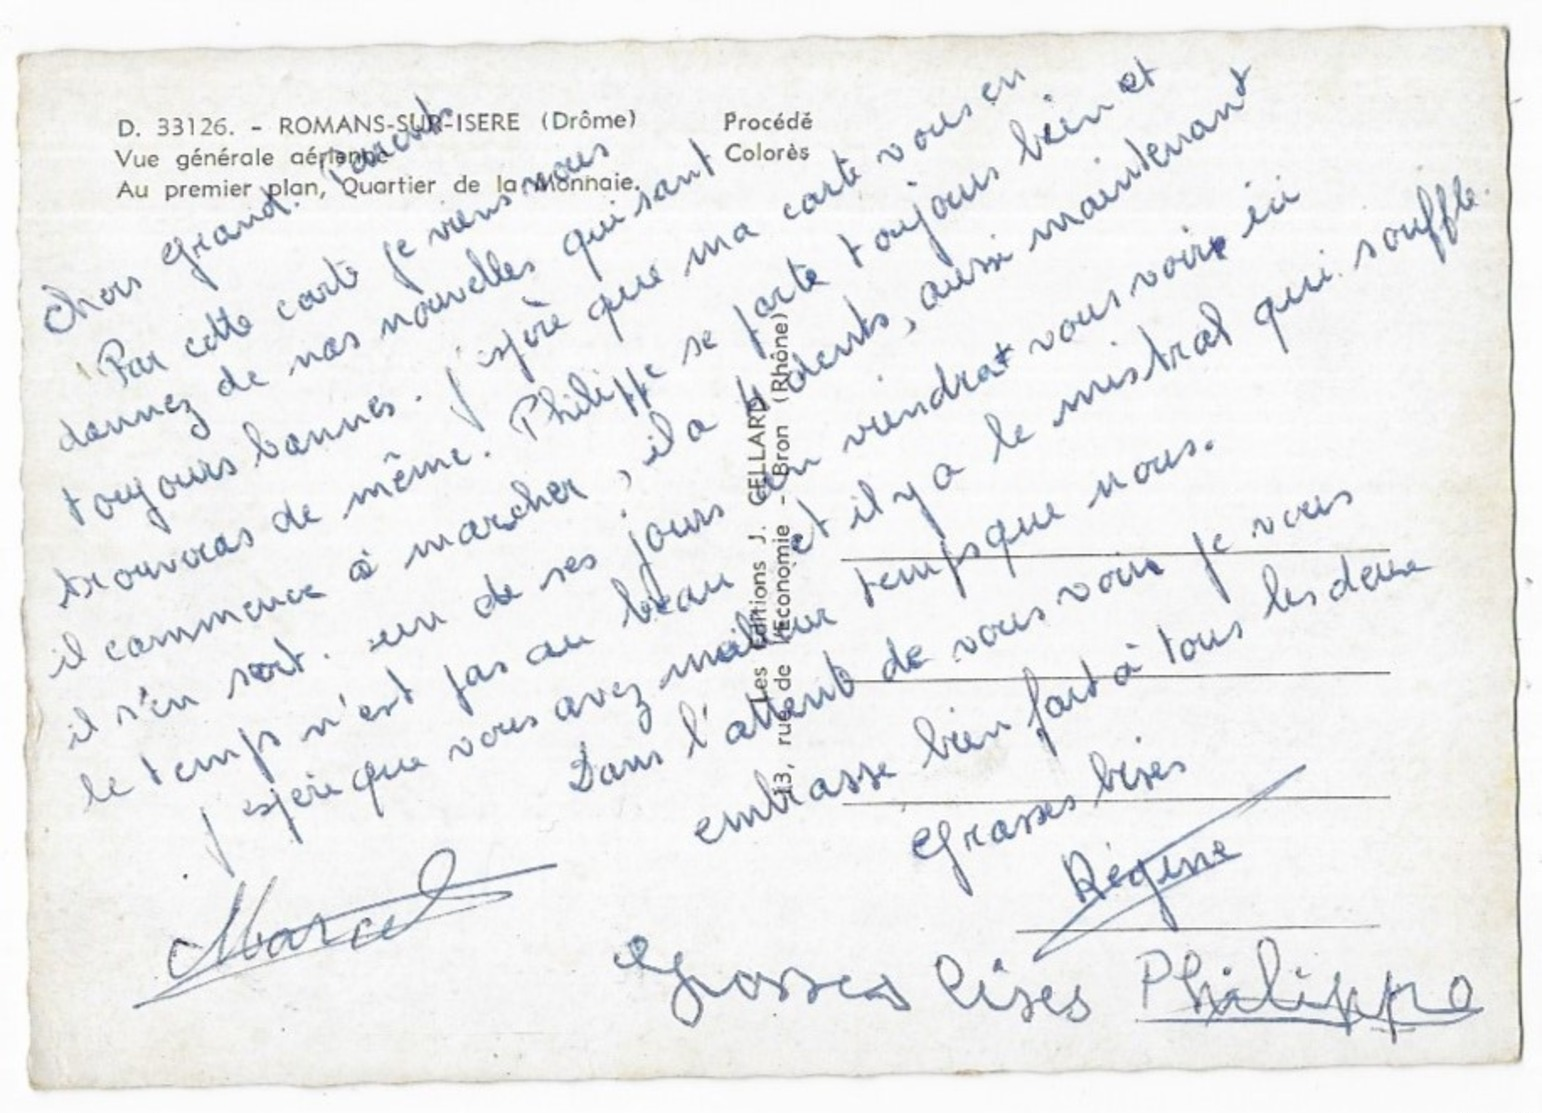 D. 33126. - ROMANS-SUR-ISERE (Drôme)
Vue générale aérienne
Au premier plan, Quartier de la Monnaie.
Procédé
Colorès
Les Editions J. CELLARD
13, rue de l'Economie - Bron (Rhône)
Chers grand. Parents
Par cette carte je viens vous
donnez de nos nouvelles qui sont
toujours bonnes. j'espère que ma carte vous en
trouveras de même. Philippe se porte toujours bien et
il commence à marcher, il a 4 dents, aussi maintenant
il s'en sort. un de ses jours on viendrat vous voir ici
le temps n'est pas au beau et il y a le mistral qui souffle.
j'espère que vous avez meilleur temps que nous.
Dans l'attente de vous voir je vous
embrasse bien fort à tous les deux
Grosses bises
Régine
Marcel
Grosses bises Philippe